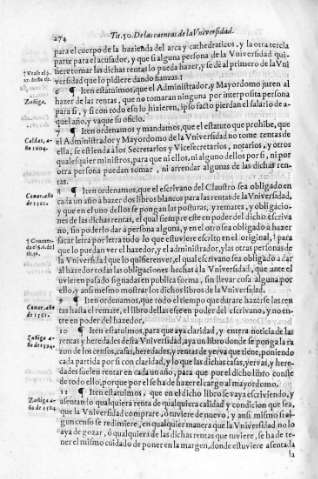 274
Tit. 50. De las cuentas de la Vniversidad.
para el cuerpo de la hazienda del arca y cathedraticos, y la otra tercia
parte para el acusador, y que si alguna persona de la Vniversidad qui-
siere tomar las dichas rentas lo pueda hazer, y se dè al primero de la Vni
versidad que lo pidiere dando fianças.
Zuñiga.
6 ¶ Iten estatuimos, que el Administrador, y Mayordomo juren al
hazer de las rentas, que no tomaran ninguna por interposita persona
para si, y si con todo esso lo hizieren, ipso facto pierdan el salario de a-
quel año, y vaque su oficio.
7 ¶ Iten ordenamos y mandamos, que el estatuto que prohibe, que
el Administrador y Mayordomo de la Vniversidad no tome rentas de
ella, se estienda a los Secretarios y Vicesecretarios, notarios, y otros
qualesquier ministros, para que ni ellos, ni alguno dellos por si, ni por
otra persona puedan tomar, ni arrendar algunas de las dichas ren-
tas.
8 ¶ Iten ordenamos, que el escrivano del Claustro sea obligado en
cada un año à hazer dos libros blancos para las rentas de la Vniversidad,
y que en el uno dellos se pongan las posturas, y remates, y obligacio-
nes de las dichas rentas, el qual siempre estè en poder del dicho escriva
no, sin poderlo dar à persona alguna, y en el otro sea obligado à hazer
sacar letra por letra todo lo que estuviere escrito en el original, para
que lo puedan ver el hazedor, y el administrador, y las otras personas de
la Vniversidad que lo quisieren ver, el qual escrivano sea obligado à dar
al hazedor todas las obligaciones hechas à la Vniversidad, que ante el
uvieren passado signadas en publica forma, sin llevar cosa alguna por
ello, y ansi mesmo mostrar los dichos libros de la Vniversidad.
9 ¶ Iten ordenamos, que todo el tiempo que durare hazerse las ren
tas hasta el remate, el libro dellas estè en poder del escrivano, y no en-
tre en poder del hazedor.
10 ¶ Iten estatuimos, para que aya claridad, y entera noticia de las
rentas y heredades desta Vniversidad, aya un libro donde se ponga la ra
zon de los censos, casas, heredades, y rentas de yerva que tiene, poniendo
cada partida por si con claridad, y lo que las dichas casas, yervas, y hereda-
des suelen rentar en cada un año, para que por el dicho libro conste
de todo ello, porque por el se ha de hazer el cargo al mayordomo.
11 ¶ Iten estatuimos, que en el dicho libro se vaya escriviendo, y
assentando qualquiera renta de qualquiera calidad y condicion que sea,
que la Vniversidad comprare, ò uviere de nuevo, y ansi mismo si al-
gun censo se redimiere, en qualquiera manera que la Vniversidad no lo
aya de gozar, ò qualquiera de las dichas rentas que tuviere, se ha de te-
ner el mismo cuidado de poner en la margen, donde estuviere assentada
la